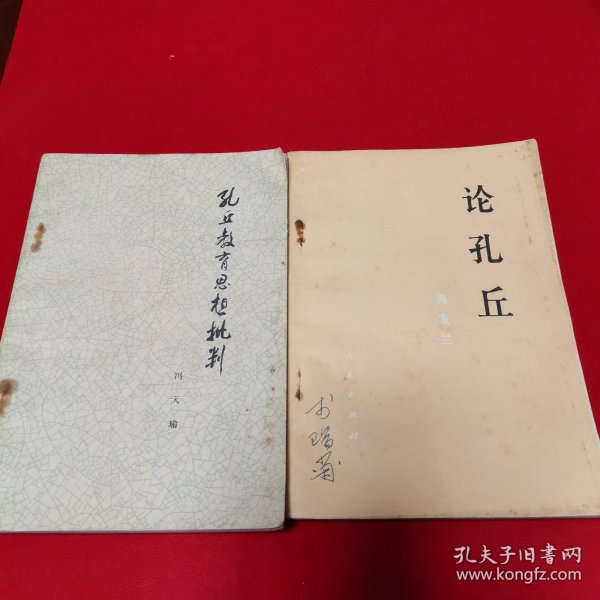 孔丘教育思想批判
冯天瑜
论孔丘
冯友兰
人民出版社
孔夫子旧书网
www.kongfz.com